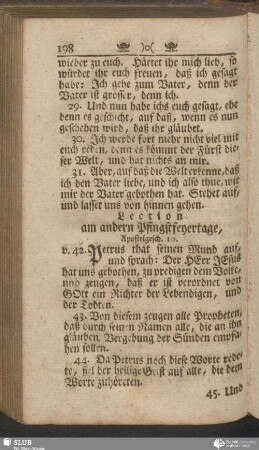 198 )o(
wieder zu euch. Hättet ihr mich lieb, so
würdet ihr euch freuen, daß ich gesagt
habe: Ich gehe zum Vater, denn der
Vater ist grösser, denn ich.
29. Und nun habe ichs euch gesagt, ehe
denn es geschicht, auf daß, wenn es nun
geschehen wird, daß ihr gläubet.
30. Ich werde fort mehr nicht viel mit
euch reden, denn es kömmt der Fürst die-
ser Welt, und hat nichts an mir.
31. Aber, auf daß die Welt erkenne, daß
ich den Vater liebe, und ich also thue, wie
mir der Vater gebothen hat. Stehet auf,
und lasset uns von hinnen gehen.
Lection
am andern Pfingstfeyertage,
Apostelgesch. 10.
v. 42. Petrus that seinen Mund auf,
und sprach: Der HErr JEsus
hat uns gebothen, zu predigen dem Volke,
und zeugen, daß er ist verordnet von
GOtt ein Richter der Lebendigen, und
der Todten.
43. Von diesem zeugen alle Propheten,
daß durch seinen Namen alle, die an ihn
gläuben, Vergebung der Sünden empfa-
hen sollen.
44. Da Petrus noch diese Worte rede-
te, fiel der heilige Geist auf alle, die dem
Worte zuhöreten.
45. Und
SLUB